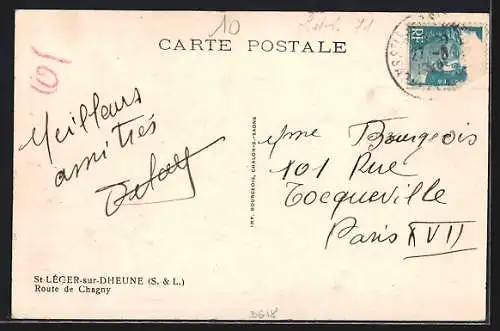 10
CARTE POSTALE
RF
Meilleurs
amitiés
Mme Bourgeois
101 Rue
Tocqueville
Paris XVII
IMP. BOURGEOIS, CHALON-s.-SAONE
St-LÉGER-sur-DHEUNE (S. & L.)
Route de Chagny